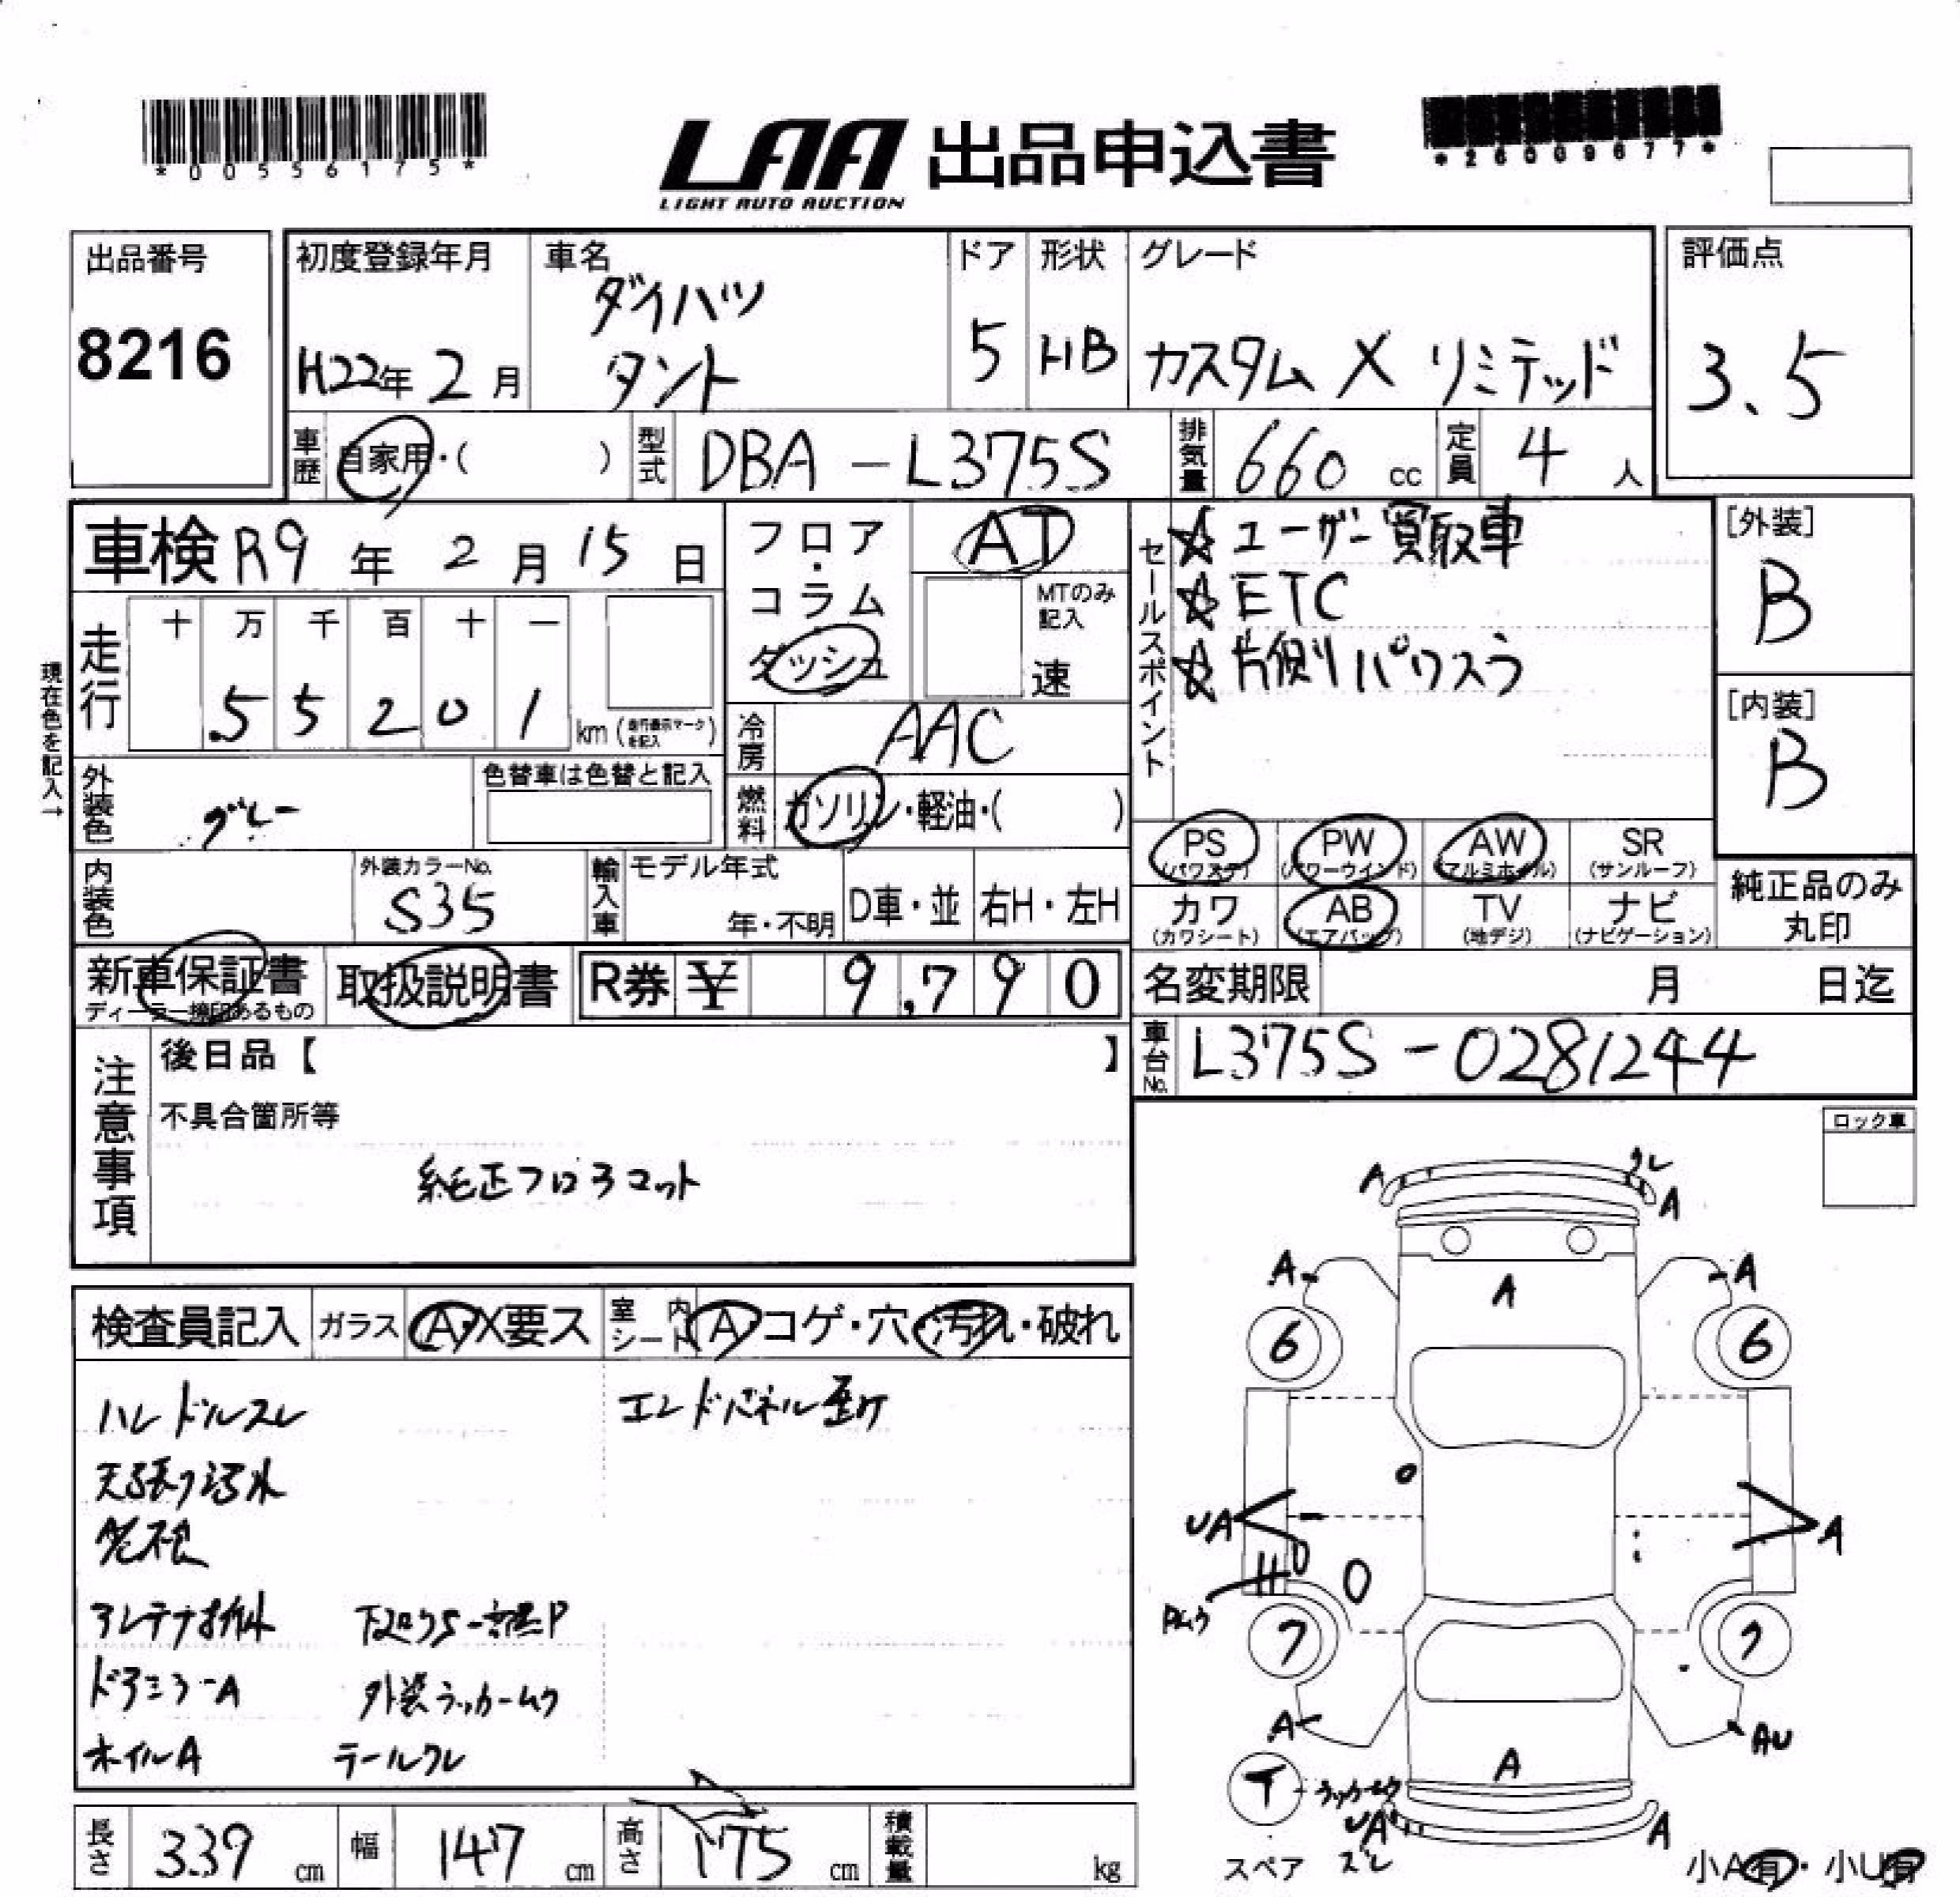 *00556175*
LAA 出品申込書
LIGHT AUTO AUCTION
*26009677*
出品番号
8216
初度登録年月
H22年 2月
車名
ダイハツ
タント
ドア
5
形状
HB
グレード
カスタム X リミテッド
評価点
3.5
車歴 自家用・( )
型式 DBA-L375S
排気量 660 cc
定員 4 人
車検 R9年 2月 15日
フロア・コラム
ダッシュ
AT
MTのみ記入
速
走行
十 万 千 百 十 一
5 5 2 0 1 km (走行表示マークを記入)
現在色を記入→
冷房 AAC
外装色 グレー
色替車は色替と記入
燃料 ガソリン・軽油・( )
内装色
外装カラーNo.
S35
輸入車
モデル年式
年・不明
D車・並
右H・左H
セールスポイント
☆ ユーザー買取車
☆ ETC
☆ 片側パワスラ
[外装]
B
[内装]
B
PS (パワステ)
PW (パワーウインド)
AW (アルミホイル)
SR (サンルーフ)
カワ (カワシート)
AB (エアバッグ)
TV (地デジ)
ナビ (ナビゲーション)
純正品のみ丸印
新車保証書
ディーラー捺印あるもの
取扱説明書
R券 ¥ 9,790
名変期限 月 日迄
車台No. L375S-0281244
注意事項
後日品【 】
不具合箇所等
純正フロアマット
ロック車
検査員記入
ガラス A・X要ス
室内シート A・コゲ・穴・汚れ・破れ
ハンドルスレ
エンドパネル歪ケ
天張り汚れ
アンテナ欠
ドアミラーA
外装ラッカームラ
ホイルA
テールワレ
長さ 339 cm
幅 147 cm
高さ 175 cm
積載量 kg
A
ワレ
A
A
A
A
6
6
UA
A
O
7
7
A
AU
A
T
ラッカームラ
UA
ズレ
A
スペア
小A有・小U有